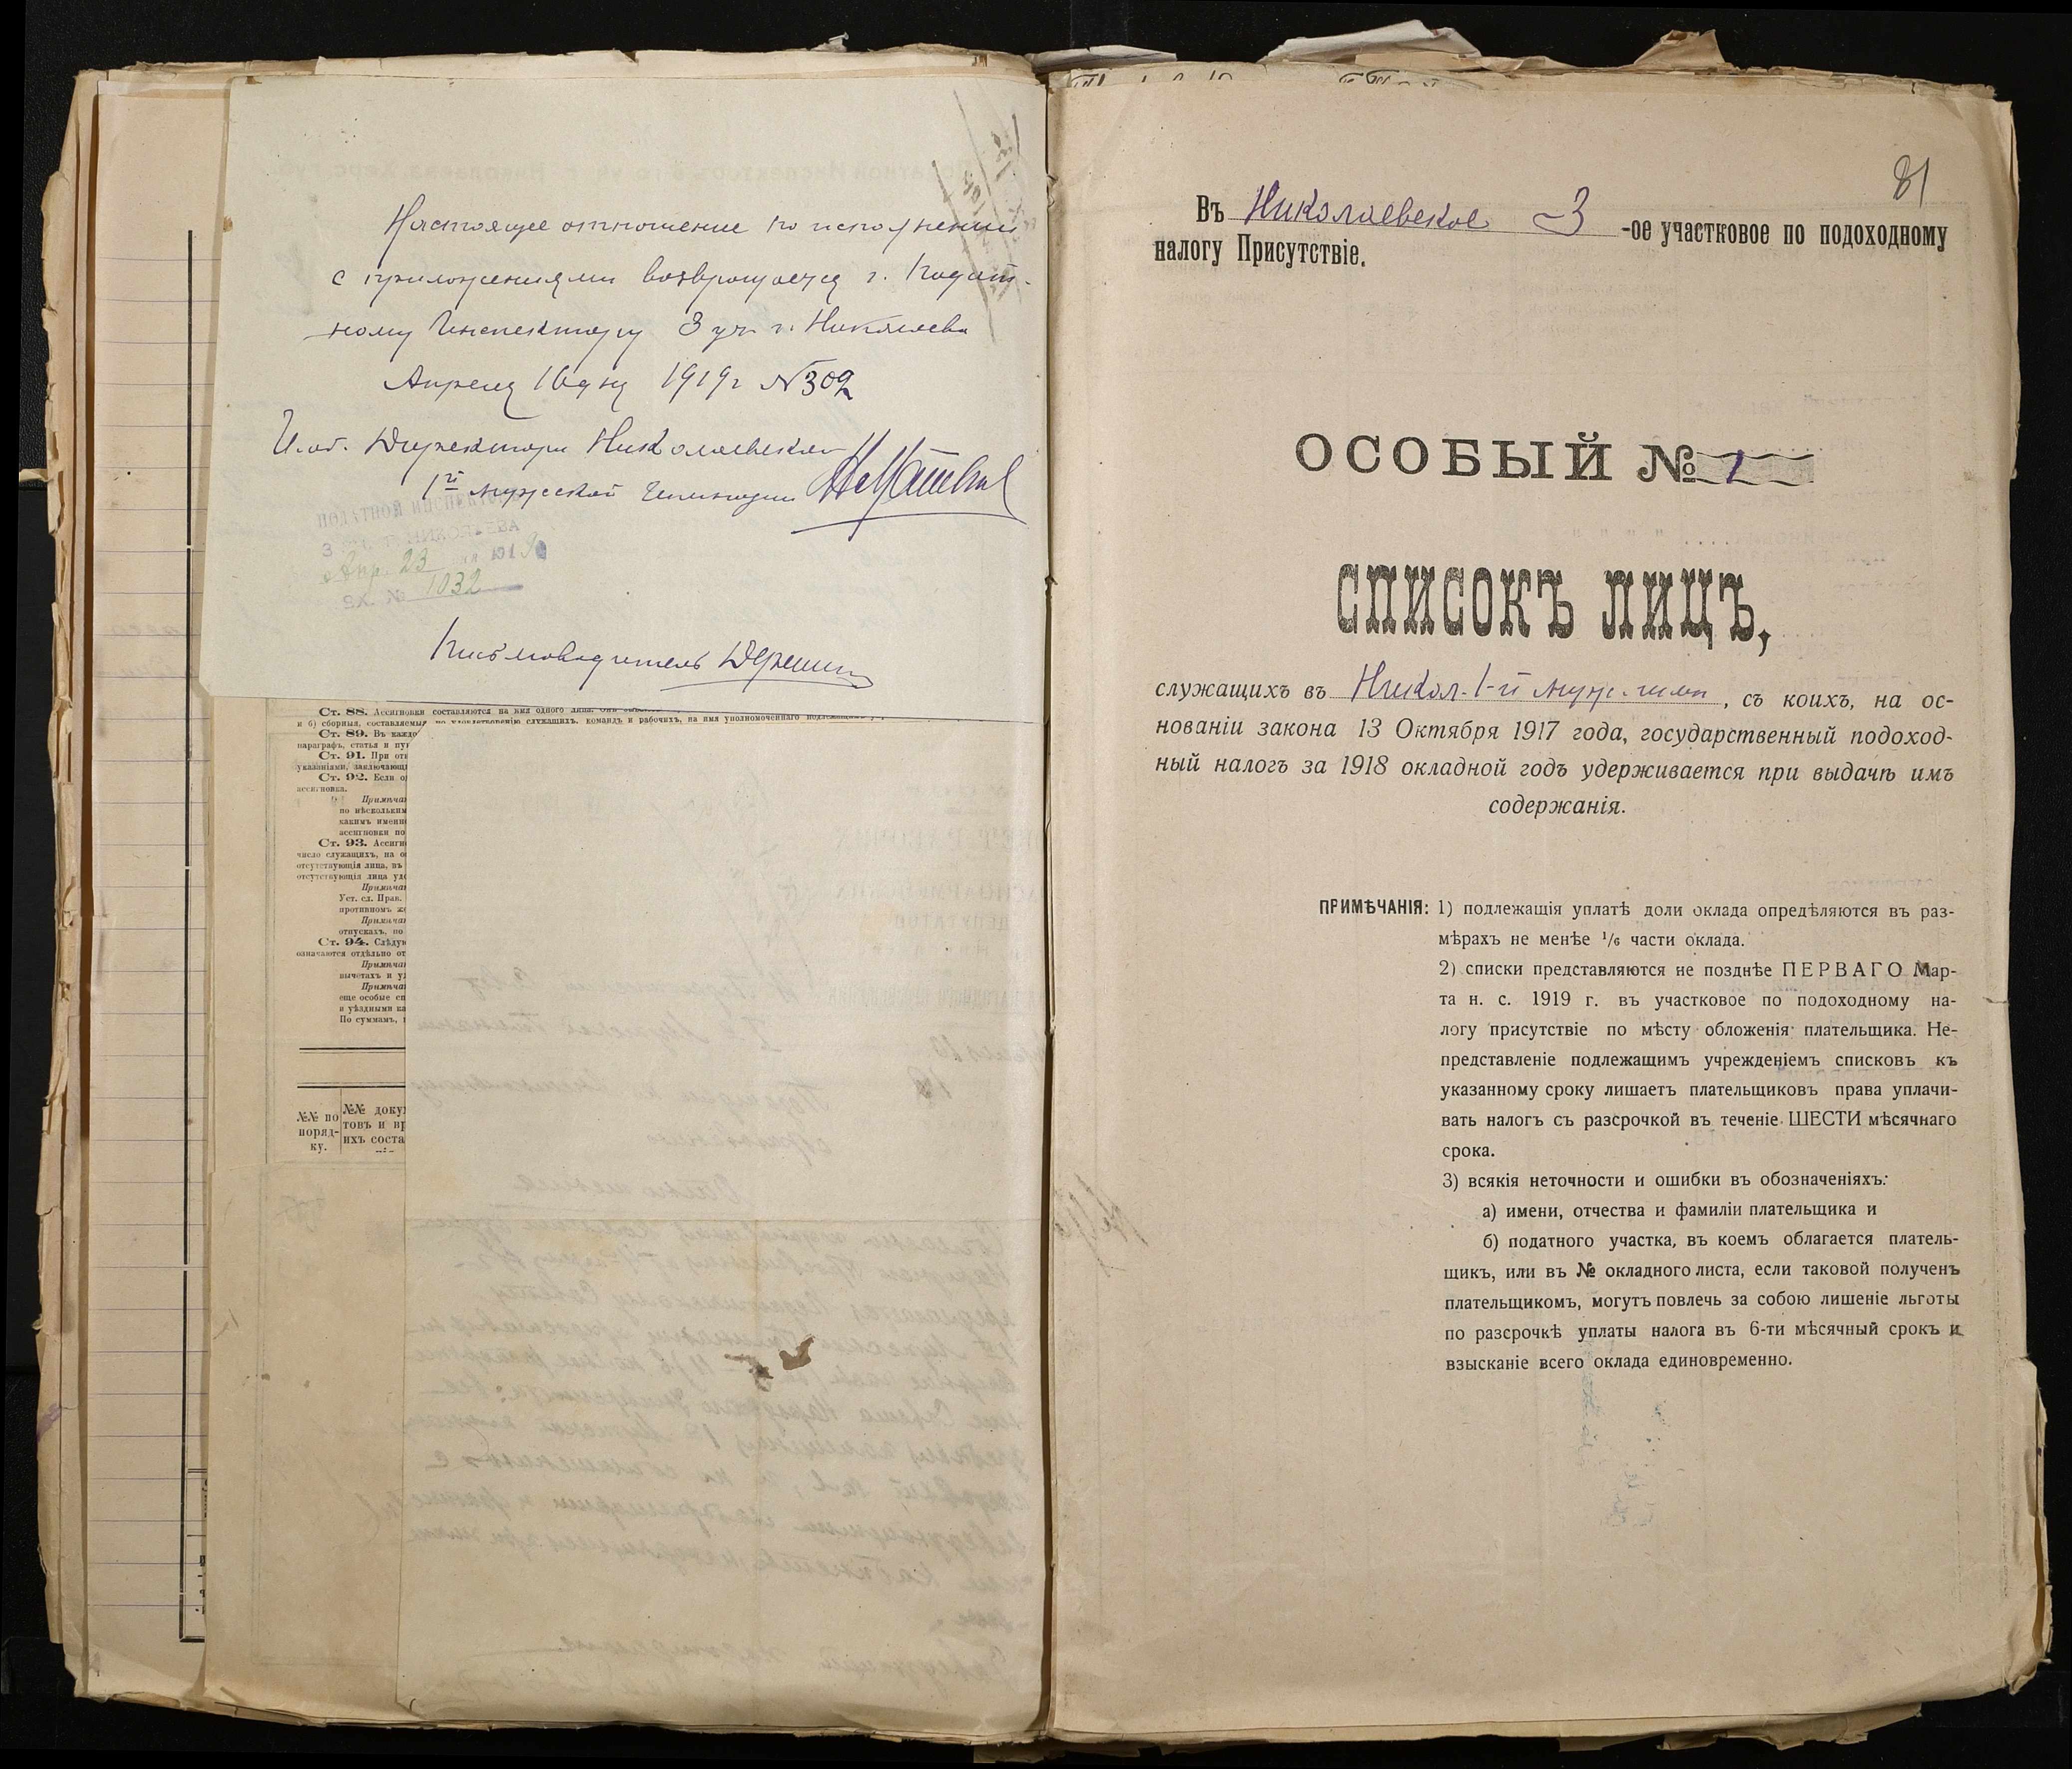 Настоящее отношение по исполнении
с приложениями возвращается г. Подат-
ному Инспектору 3 уч. г. Николаева
Апреля 16 дня 1919 г № 302
И. об. Директора Николаевской
1й мужской Гимназии
ПОДАТНОЙ ИНСПЕКТОР
3 уч. г. НИКОЛАЕВА
Апр. 23 дня 1919
Вх. № 1032
Письмоводитель
Ст. 88. Ассигновки составляются на имя одного лица.
и б) сборныя, составляемыя по удовлетворенію служащихъ, командъ и рабочихъ, на имя уполномоченнаго
Ст. 89. Въ каждо
параграфъ, статья и пун
Ст. 91. При отп
указаніями, заключающи
Ст. 92. Если о
ассигновка.
Примѣча
по нѣскольким
какимъ имени
ассигновки по
Ст. 93. Ассигн
число служащихъ, на о
отсутствующія лица, въ
отсутствующія лица удо
Примѣча
Уст. сл. Прав.
противномъ ж
Примѣча
отпускахъ, по
Ст. 94. Слѣдую
означаются отдѣльно от
Примѣча
вычетахъ и у
Примѣча
еще особые сп
и уѣздными ка
По суммамъ,
№№ по
поряд-
ку.
№№ доку
товъ и вр
ихъ соста
81
Въ Николаевское 3 -ое участковое по подоходному
налогу Присутствіе.
ОСОБЫЙ № 1
СПИСОКЪ ЛИЦЪ,
служащихъ въ Никол. 1-й муж. гимн, съ коихъ, на ос-
нованіи закона 13 Октября 1917 года, государственный подоход-
ный налогъ за 1918 окладной годъ удерживается при выдачѣ имъ
содержанія.
ПРИМѢЧАНІЯ: 1) подлежащія уплатѣ доли оклада опредѣляются въ раз-
мѣрахъ не менѣе 1/6 части оклада.
2) списки представляются не позднѣе ПЕРВАГО Мар-
та н. с. 1919 г. въ участковое по подоходному на-
логу присутствіе по мѣсту обложенія плательщика. Не-
представленіе подлежащимъ учрежденіемъ списковъ къ
указанному сроку лишаетъ плательщиковъ права уплачи-
вать налогъ съ разсрочкой въ теченіе ШЕСТИ мѣсячнаго
срока.
3) всякія неточности и ошибки въ обозначеніяхъ:
а) имени, отчества и фамиліи плательщика и
б) податного участка, въ коемъ облагается платель-
щикъ, или въ № окладного листа, если таковой полученъ
плательщикомъ, могутъ повлечь за собою лишеніе льготы
по разсрочкѣ уплаты налога въ 6-ти мѣсячный срокъ и
взысканіе всего оклада единовременно.